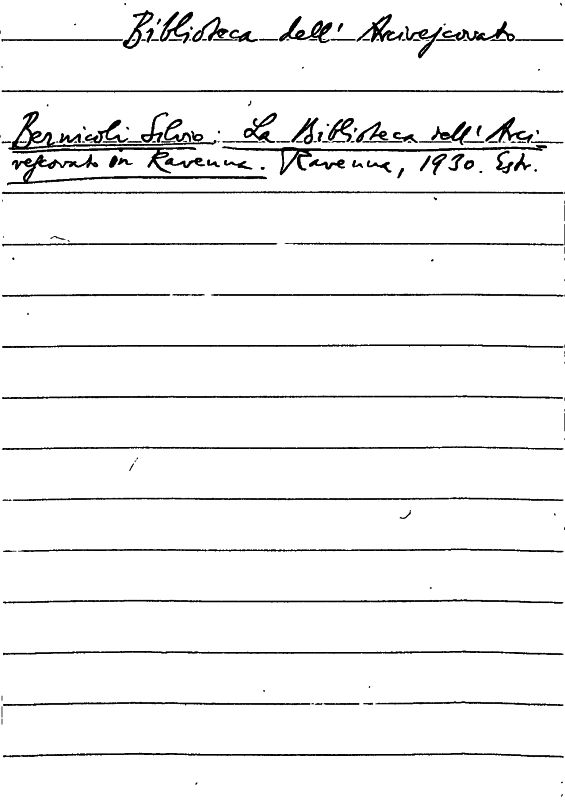 Biblioteca dell' Arcivescovato
Bernicoli Silvio: La Biblioteca dell' Arci-
vescovato in Ravenna. Ravenna, 1930. Estr.